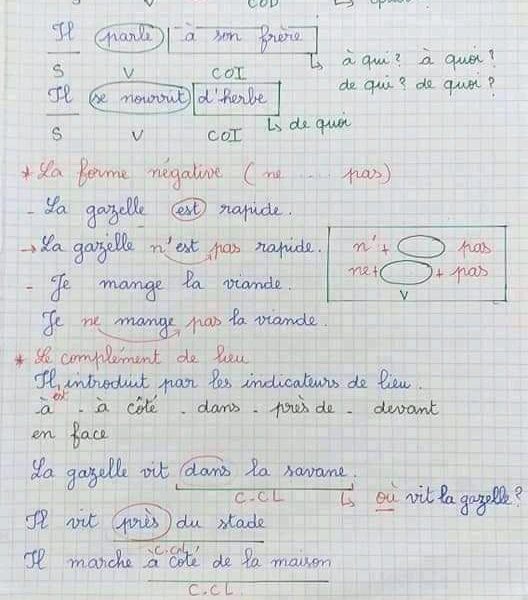 S V COD
Il parle à son frère
à qui ? à quoi ?
S V COI
de qui ? de quoi ?
Il se nourrit d'herbe
de quoi
S V COI
* La forme négative ( ne .... pas)
- La gazelle est rapide.
→ La gazelle n'est pas rapide.
n' + pas
- Je mange la viande.
ne + + pas
V
Je ne mange pas la viande.
* Le complément de lieu
Il est introduit par les indicateurs de lieu.
à - à côté - dans - près de - devant
en face
La gazelle vit dans la savane.
C.CL
où vit la gazelle ?
Il vit près du stade
C.CL
Il marche à coté de la maison
C.CL